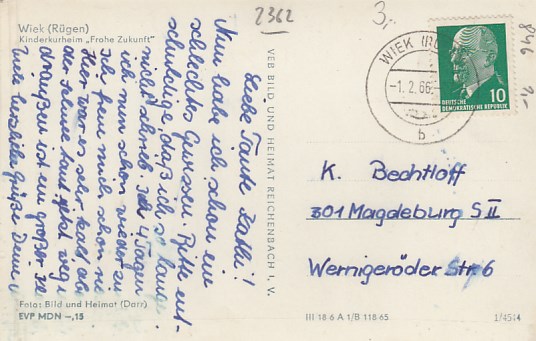 Wiek (Rügen)
Kinderkurheim „Frohe Zukunft“
Liebe Tante Käthe!
Nun habe ich schon ein
schlechtes Gewissen. Bitte ent-
schuldige, daß ich so lange
nicht schrieb. In 4 Tagen
ich nun schon wieder zu
Ich freue mich schon
Hier war es sehr kalt
der Schnee taut jetzt weg
draußen ist ein großer
Viele herzliche Grüße Dein
Fotos: Bild und Heimat (Darr)
EVP MDN –,15
VEB BILD UND HEIMAT REICHENBACH I. V.
2362
3,-
846
WIEK (RÜ
–1. 2. 66
b
10
DEUTSCHE
DEMOKRATISCHE REPUBLIK
K. Bechtloff
301 Magdeburg S II
Wernigeröder Str. 6
III 18 6 A 1/B 118 65
1/4514